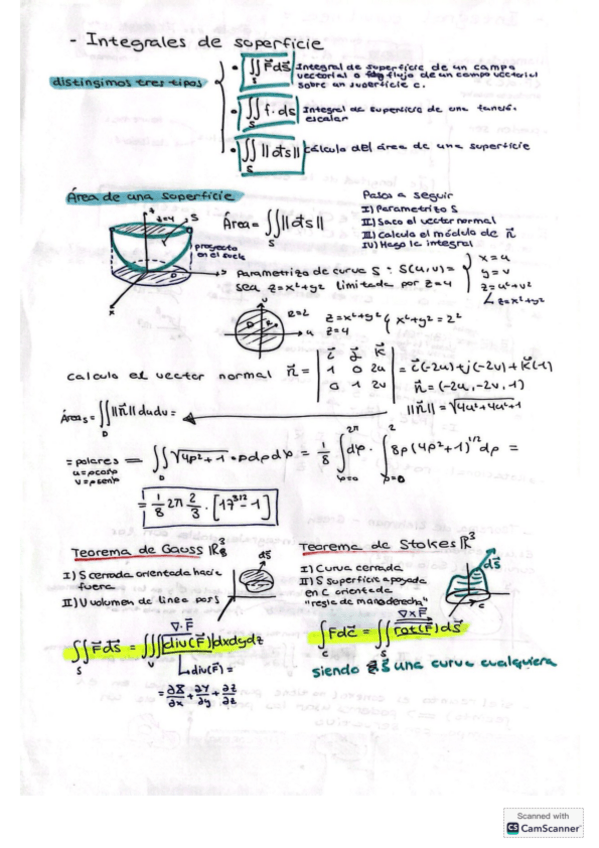 - Integrales de superficie
distingimos tres tipos
• ∬_S F⃗ dS⃗ Integral de superficie de un campo
vectorial o flujo de un campo vectorial
sobre un superficie c.
• ∬_S f·ds Integral de superficie de una función
escalar
• ∬_S ||dS⃗|| cálculo del área de una superficie
Área de una superficie
Área = ∬_S ||dS⃗||
Pasos a seguir
I) Parametrizo S
II) Saco el vector normal
III) calculo el módulo de n⃗
IV) Hago la integral
z=4
S
proyecto
en el suelo
D
x
Parametrizo de curva S : S(u,v) = { x=u
y=v
z=u²+v²
z=x²+y²
sea z=x²+y² limitada por z=4
v
R=2
D
u
z=x²+y² { x²+y²=2²
z=4
calculo el vector normal n⃗ = | i⃗ j⃗ k⃗ |
| 1 0 2u |
| 0 1 2v |
= i⃗(-2u)+j(-2v)+k⃗(1)
n⃗ = (-2u, -2v, 1)
||n⃗|| = √4u²+4v²+1
Área_S = ∬_D ||n⃗|| dudv =
= polares = ∬_D √4ρ²+1 · ρ dρ dφ = 1/8 ∫_{φ=0}^{2π} dφ · ∫_{ρ=0}^{2} 8ρ(4ρ²+1)^{1/2} dρ =
u=ρcosφ
v=ρsenφ
= 1/8 2π 2/3 · [17^{3/2} - 1]
Teorema de Gauss ℝ³
dS⃗
I) S cerrada orientada hacia
fuera
II) V volumen de línea por S
∇·F⃗
∬_S F⃗ dS⃗ = ∭_V div(F⃗) dxdydz
div(F⃗) =
= ∂X/∂x + ∂Y/∂y + ∂Z/∂z
Teorema de Stokes ℝ³
dS⃗
I) Curva cerrada
II) S superficie apoyada
en C orientada
"regla de mano derecha"
C
∇×F⃗
∫_C F dc⃗ = ∬_S rot(F⃗) dS⃗
siendo S una curva cualquiera
Scanned with
CS CamScanner